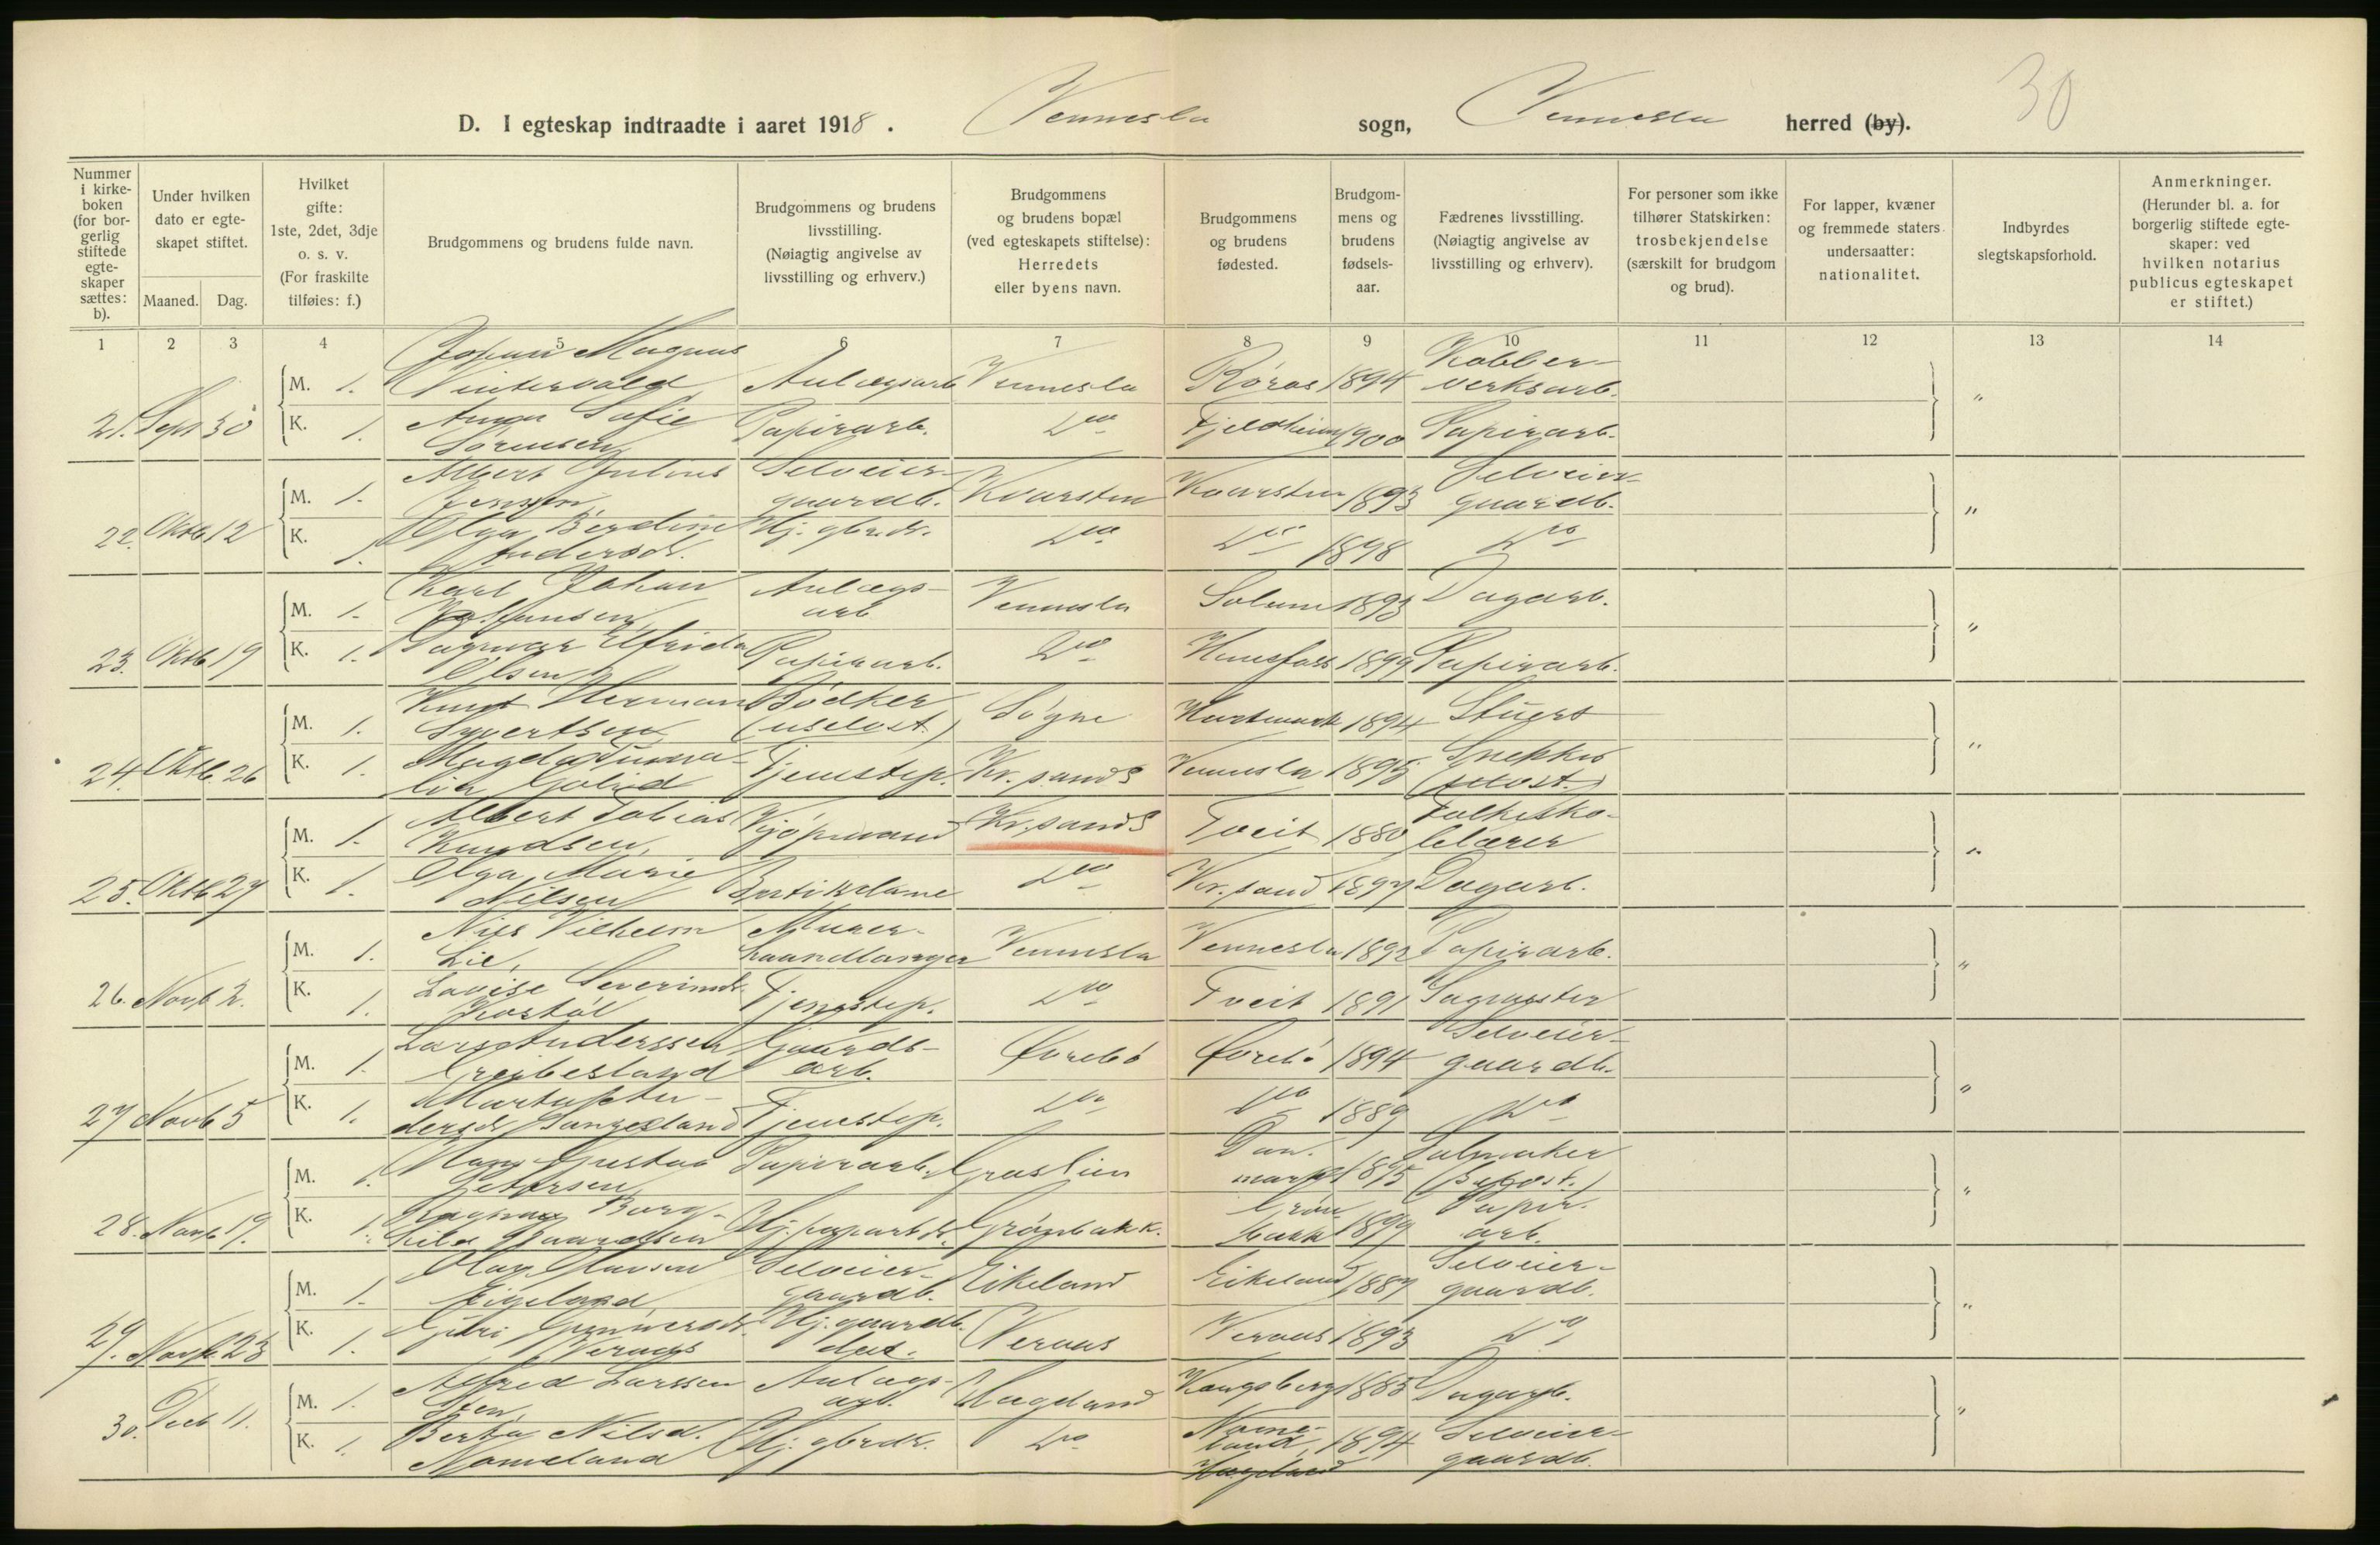 30
D. I egteskap indtraadte i aaret 1918. Vennesla sogn, Vennesla herred (by).
Nummer i kirke-boken (for bor-gerlig stiftede egte-skaper sættes: b).
Under hvilken dato er egte-skapet stiftet.
Maaned. Dag.
Hvilket gifte: 1ste, 2det, 3dje o. s. v. (For fraskilte tilføies: f.)
Brudgommens og brudens fulde navn.
Brudgommens og brudens livsstilling. (Nøiagtig angivelse av livsstilling og erhverv.)
Brudgommens og brudens bopæl (ved egteskapets stiftelse): Herredets eller byens navn.
Brudgommens og brudens fødested.
Brudgom-mens og brudens fødsels-aar.
Fædrenes livsstilling. (Nøiagtig angivelse av livsstilling og erhverv).
For personer som ikke tilhører Statskirken: trosbekjendelse (særskilt for brudgom og brud).
For lapper, kvæner og fremmede staters undersaatter: nationalitet.
Indbyrdes slegtskapsforhold.
Anmerkninger. (Herunder bl. a. for borgerlig stiftede egte-skaper: ved hvilken notarius publicus egteskapet er stiftet.)
1 2 3 4 5 6 7 8 9 10 11 12 13 14
21. Sept 30 M. 1. Johan Magnus Vintervold Anlægsarb Vennesla Röros 1894 Kobber-verksarb. "
K. 1. Anna Sofie Sörensen Papirarb. Do Fjeldheim 1900 Papirarb.
22. Oktb 12 M. 1. Albert Julius Jensen, Selveier-gaardb. Kvarsten Kvarsten 1893 Selveier-gaardb. "
K. 1. Olga Berdine Andersd. Hj. gbr.dt. Do Do 1898 Do
23. Oktb 19 M. 1. Karl Johan Anlægs-arb Vennesla Solum 1893 Dagarb. "
K. 1. Dagmar Elfrida Olsen Papirarb. Do Hunsfoss 1899 Papirarb.
24. Oktb. 26 M. 1. Knut Herman Syvertsen Bödker (uselvst.) Sögne Hartmark 1894 Stuert "
K. 1. Tjenestep. Kr.sand S Vennesla 1895 Snekker
25. Oktb 27 M. 1. Albert Tobias Knudsen, Kjöpmand Kr.sand S Tveit 1880 Folkesko-lelærer "
K. 1. Olga Marie Nilsen Butikdame Do Kr.sand 1897 Dagarb.
26. Novb 2. M. 1. Nils Vilhelm Lie, Murer-haandlanger Vennesla Vennesla 1892 Papirarb. "
K. 1. Lovise Severinsd. Tjenestep. Do Tveit 1891 Sagmester
27 Novb 5 M. 1. Lars Anderssen Greibesland Gaards-arb. Övrebö Övrebö 1894 Selveier-gaardb. "
K. 1. Marta An-dersd. Tjenestep. Do Do 1889 Do
28. Novb 19. M. 1. Hans Gustav Petersen Papirarb. Graslien Dan-mark 1895 Salmaker "
K. 1. Ragna Borg-hild Hj. Grönbakk. Grön-bakk 1899 Papir-arb.
29. Novb 23 M. 1. Olav Eigeland, Selveier-gaardb. Eikeland Eikeland 1887 Selveier-gaardb. "
K. 1. Guri Gunnersd. Veraas Hj. gaardb. dat. Veraas Veraas 1893 Do
30. Decb 11. M. 1. Alfred Larssen Sten, Anlægs-arb. Hægeland Kongsberg 1885 Dagarb. "
K. 1. Berta Nilsd. Nomeland Hj. gbrdt. Do Nome-land, Hægeland 1894 Selveier-gaardb.